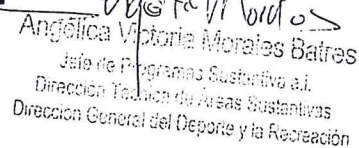 Angélica Victoria Morales Batres
Jefe de Programas Sustantivo a.i.
Dirección Técnica de Áreas Sustantivas
Dirección General del Deporte y la Recreación